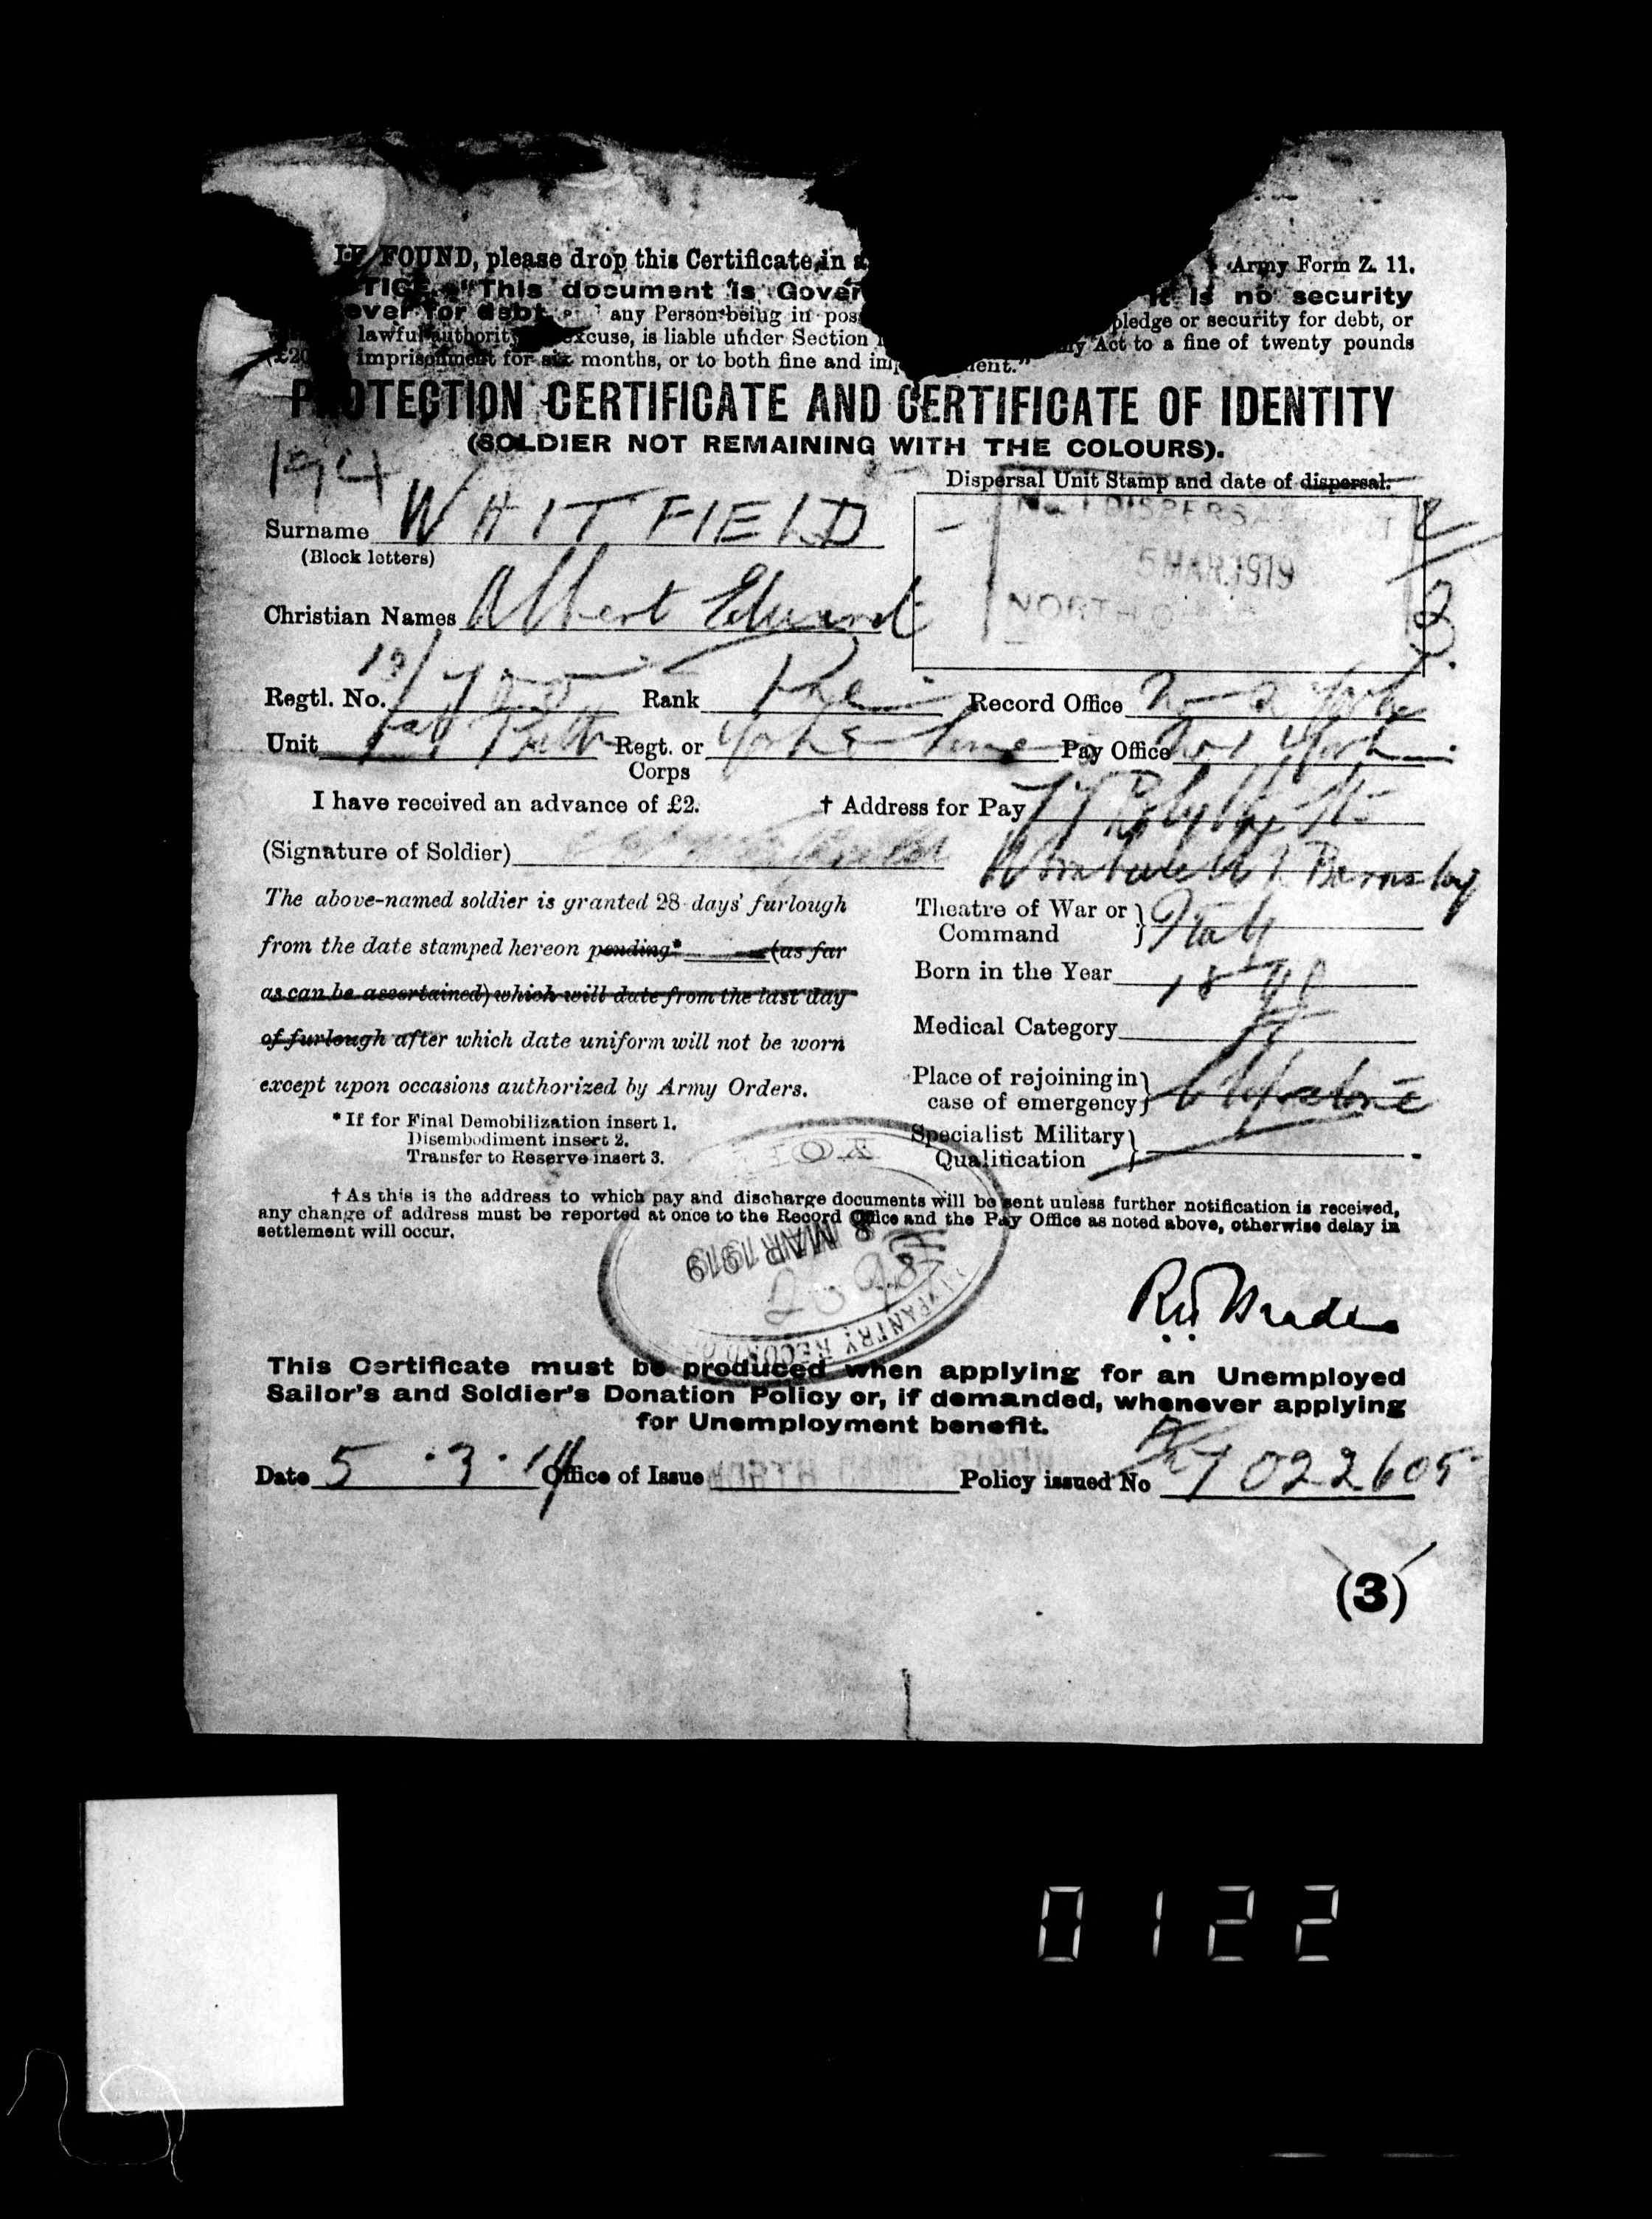 IF FOUND, please drop this Certificate in a
Army Form Z. 11.
TICE. "This document is Gover
it is no security
ever for debt any Person being in pos
pledge or security for debt, or
lawful authority excuse, is liable under Section
Act to a fine of twenty pounds
(£20 imprisonment for six months, or to both fine and imp ment."
PROTECTION CERTIFICATE AND CERTIFICATE OF IDENTITY
(SOLDIER NOT REMAINING WITH THE COLOURS).
194
Dispersal Unit Stamp and date of dispersal.
No. 1 DISPERSA
5 MAR. 1919
NORTH
Surname WHITFIELD
(Block letters)
Christian Names Albert Edward
Regtl. No. Rank Pte Record Office No 2 York
Unit 1st Battn Regt. or Corps York & Pay Office No 1 York
I have received an advance of £2. † Address for Pay
(Signature of Soldier)
Wombwell Barnsley
The above-named soldier is granted 28 days' furlough
from the date stamped hereon pending* (as far
as can be ascertained) which will date from the last day
of furlough after which date uniform will not be worn
except upon occasions authorized by Army Orders.
Theatre of War or Command Italy
Born in the Year
Medical Category
Place of rejoining in case of emergency Clipstone
Specialist Military Qualification
* If for Final Demobilization insert 1.
Disembodiment insert 2.
Transfer to Reserve insert 3.
† As this is the address to which pay and discharge documents will be sent unless further notification is received,
any change of address must be reported at once to the Record Office and the Pay Office as noted above, otherwise delay in
settlement will occur.
8 MAR 1919
INFANTRY RECORD
This Certificate must be produced when applying for an Unemployed
Sailor's and Soldier's Donation Policy or, if demanded, whenever applying
for Unemployment benefit.
Date 5.3.19 Office of Issue Policy issued No 022605
(3)
0122